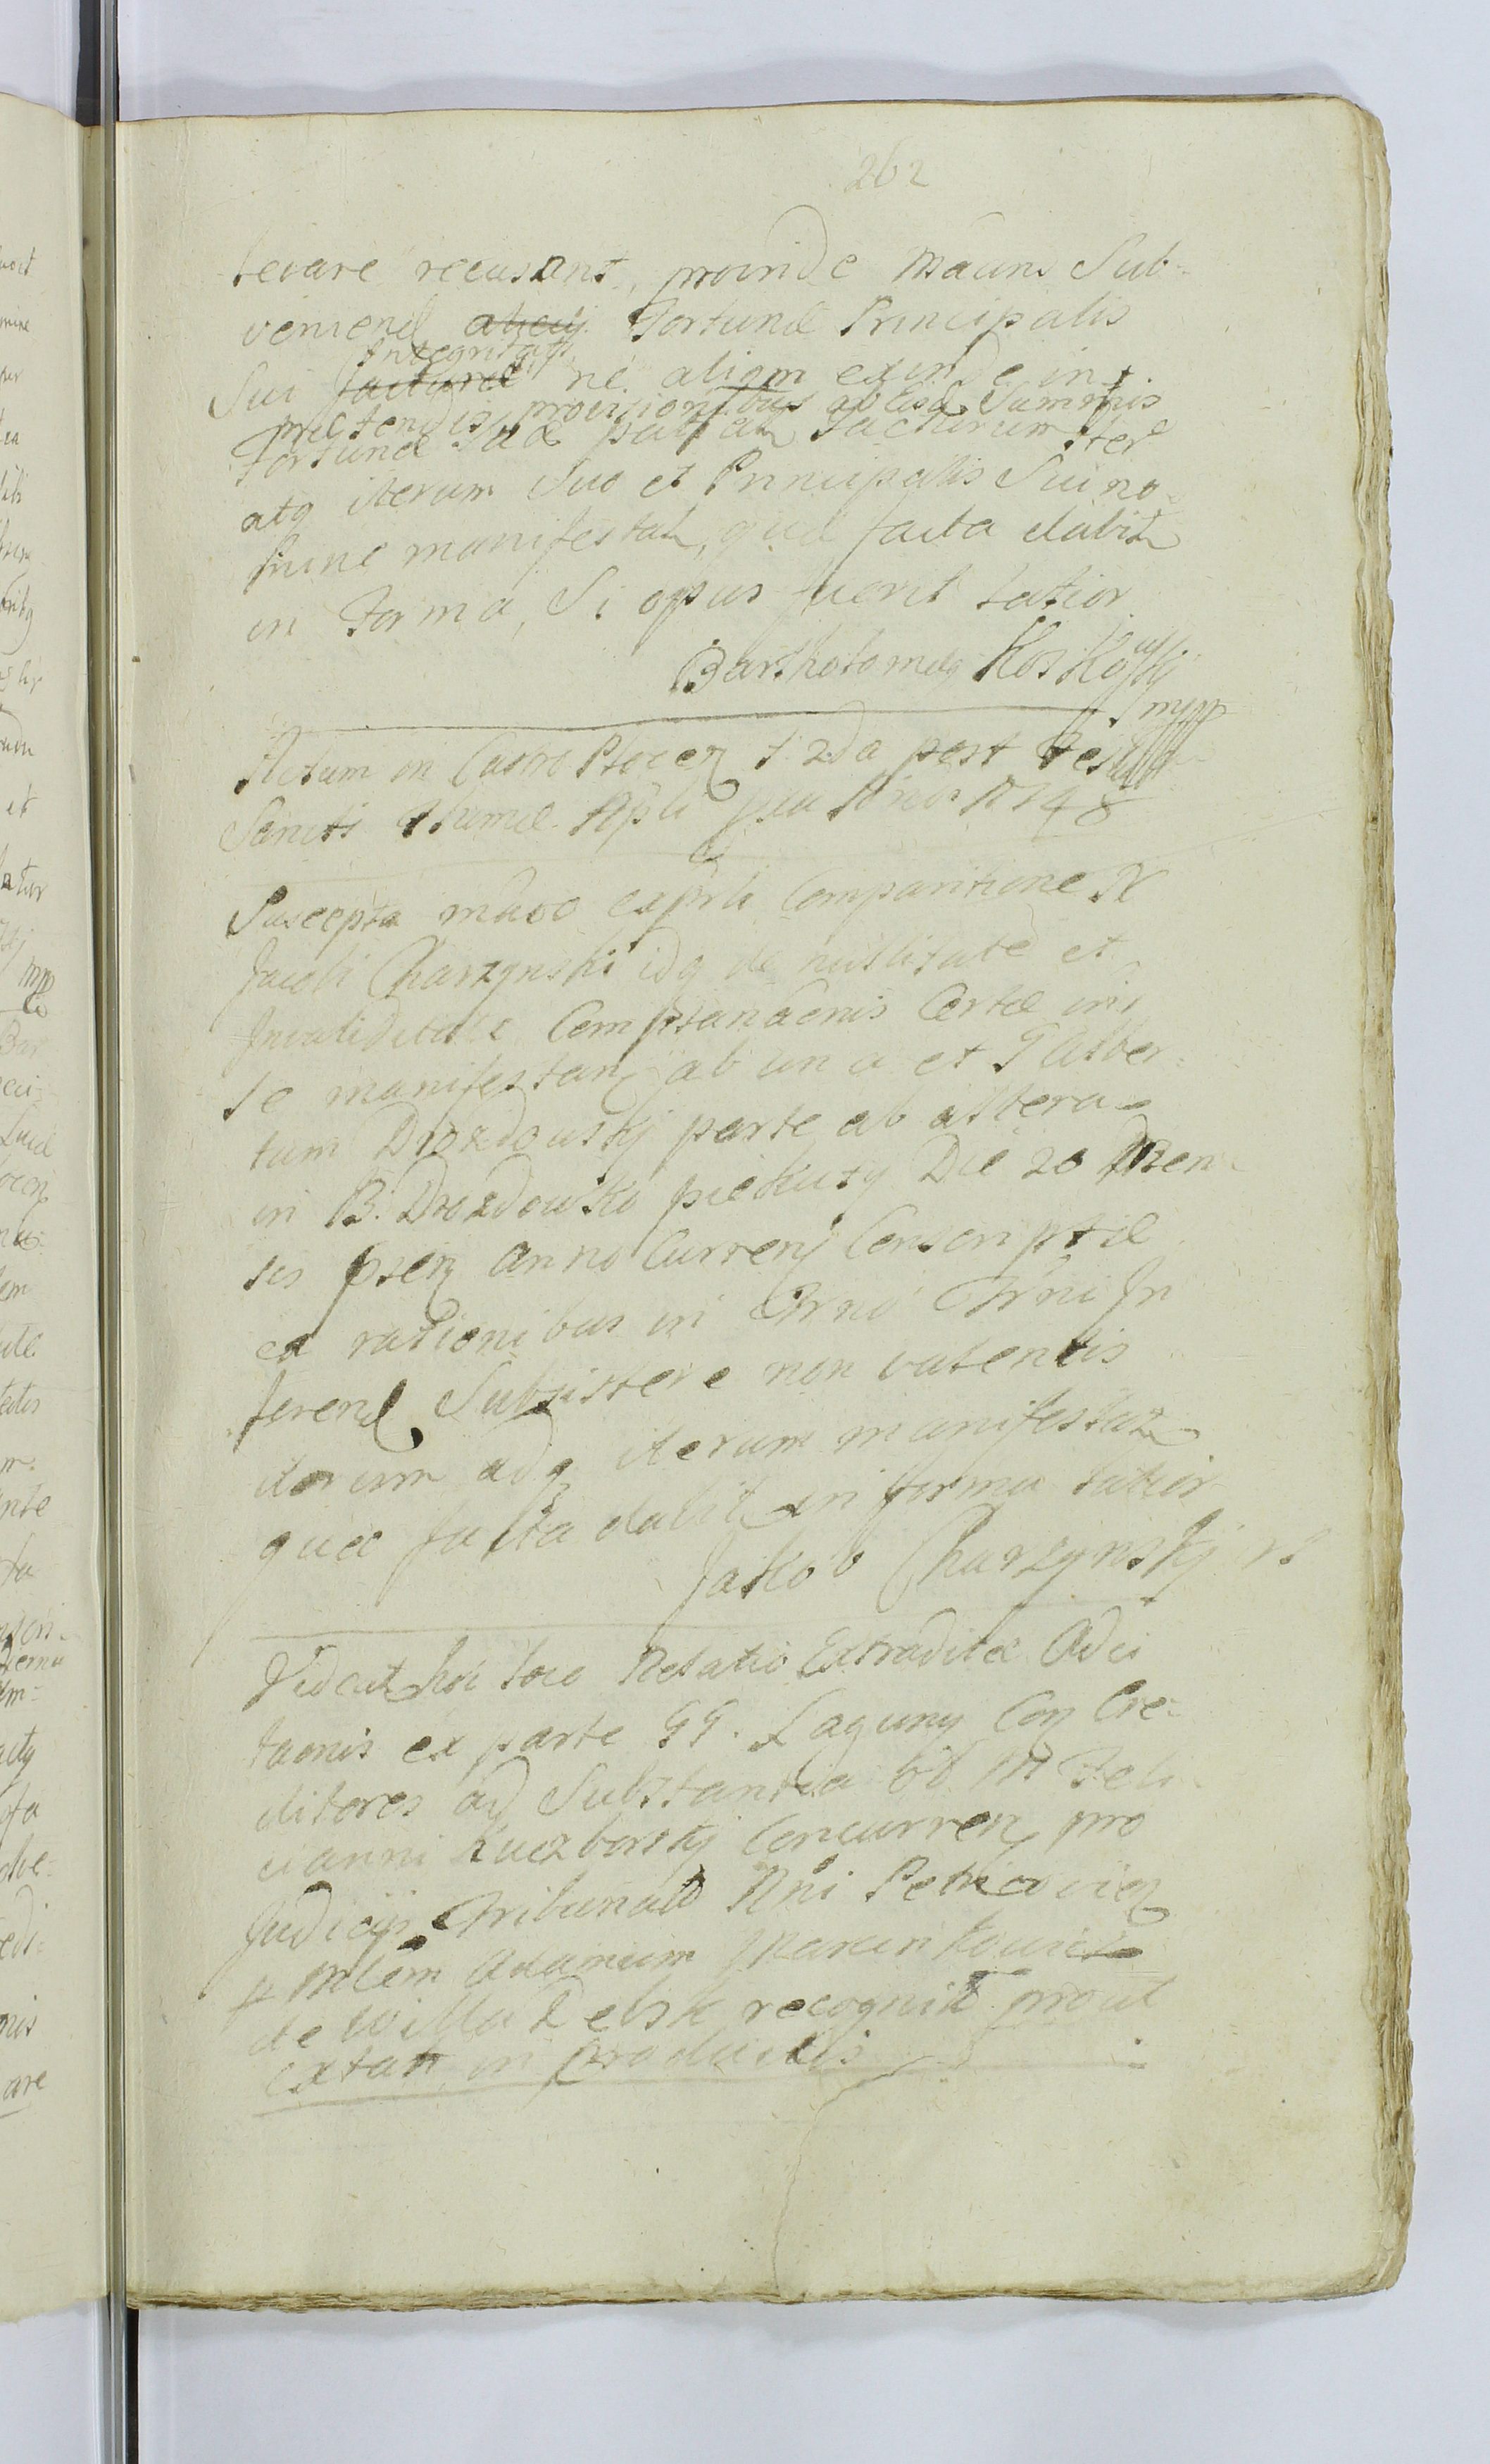 262
levare recusant, proinde Maūns Sub-
veniend atzecy Fortunæ Principalis
Integritati
Sui Jacturæ ne aliam exinde in
prætensis provisionibus ab Summis
Fortunæ suæ patiat Jacturam Iter
atq iterum Suo et Principalis Sui no-
mine manifestat, quæ facta dabit
in Forma, Si opus fuerit latior
Bartholomeg Koskowskj
mpp
Actum in Castro Plocen f. 2da post Fest
Sancti Thomæ Apli Ano 1748
Suscepta modo expŕti Comparitione N
Jacobi Charzynski idq de nullitate et
Invaliditate Complanaōnis Certæ int
se manifestan ab una et G Alber-
tum Drozdowskj parte ab altera
in B. Drozdowko piekuty Die 20 Men-
sis psen anno Curren Conscriptæ
ex rationibus in Trno Trni In
ferend Subsistere non valentis
iterum adq iterum manifestat
quæ facta dabit in forma latior
Jakob Charzynskj
Videat hoc loco Relatio Extraditæ Adci
taōnis ex parte GG. Laguny Con Cre-
ditores ad Substantia ol. M Feli
cianni Kuczborskj Concurren pro
Judicijs Tribunal Rni Petricovien
p mlem Adamum Marcinkowicz
de Willa Delsk recognit prout
extat in productis